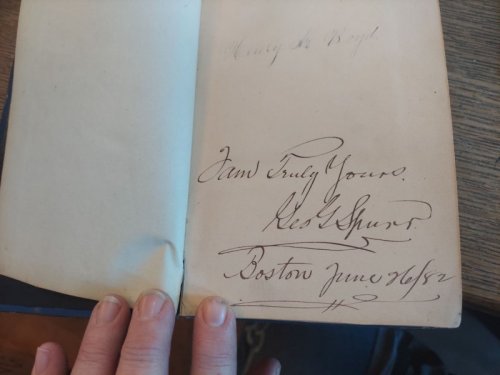 Henry A. Boyd
I am Truly Yours.
Geo G Spurr
Boston June 26/82